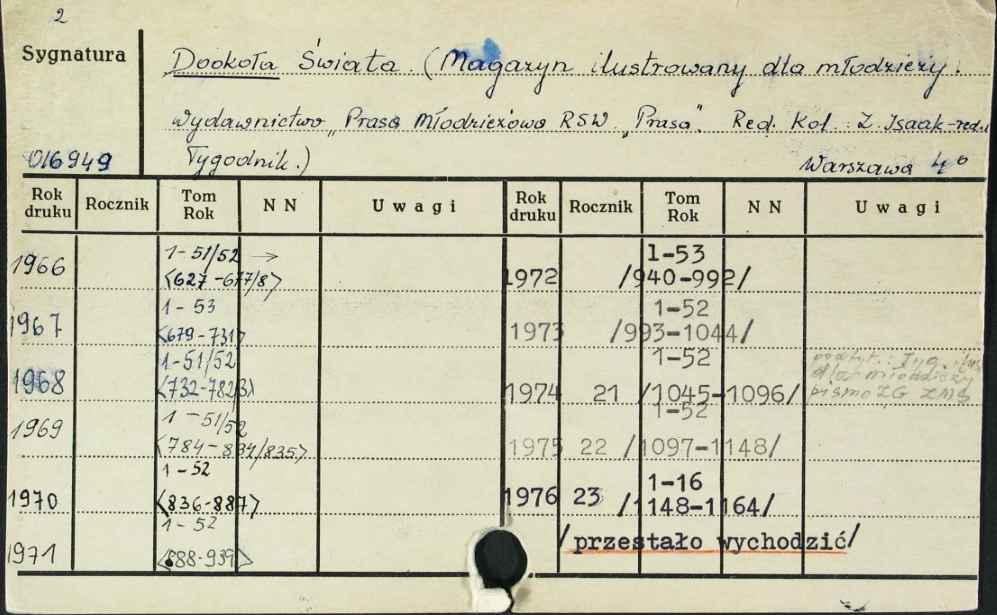 2
Sygnatura
Dookoła Świata. (Magazyn ilustrowany dla młodzieży.
Wydawnictwo „Prasa Młodzieżowa RSW „Prasa". Red. Kol. Z. Isaak-red.
016949 Tygodnik.) Warszawa 4°
Rok druku Rocznik Tom Rok NN Uwagi Rok druku Rocznik Tom Rok NN Uwagi
1966 1-51/52 →
<627-677/8>
1967 1-53
<679-731>
1968 1-51/52
<732-782/3>
1969 1-51/52
<784-834/835>
1970 1-52
<836-887>
1971 1-52
<888-939>
1972 1-53
/940-992/
1973 1-52
/993-1044/
1974 21 1-52
/1045-1096/
dla młodzieży
pismo ZG ZMS
1975 22 1-52
/1097-1148/
1976 23 1-16
/1148-1164/
/przestało wychodzić/